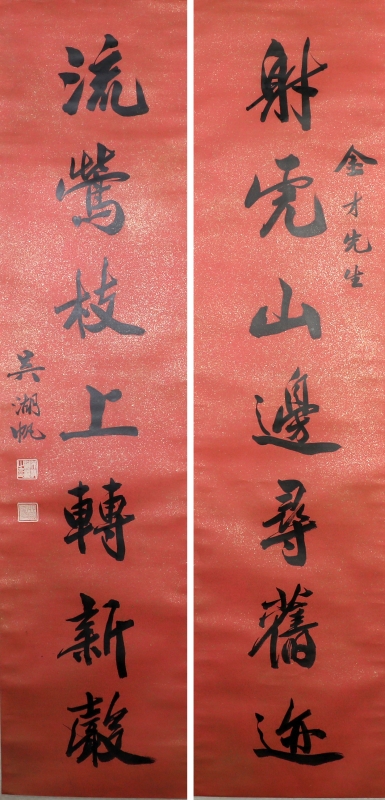 金才先生
射虎山邊尋舊迹
流鶯枝上轉新聲
吳湖帆